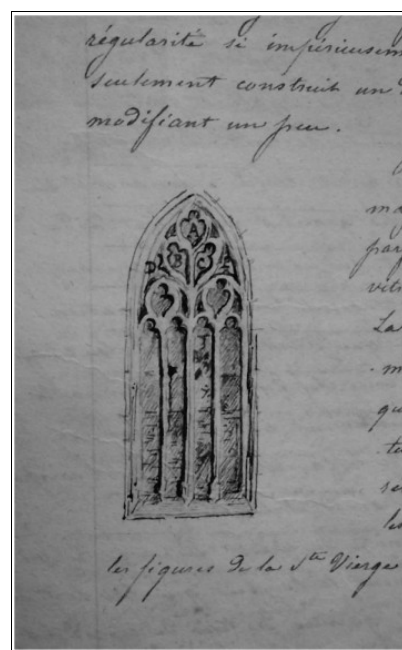 régularité si impérieusem
seulement construit un
modifiant un peu.
A
B C
D E
par
vit
La
m
qu
te
se
les
les figures de la Ste Vierge